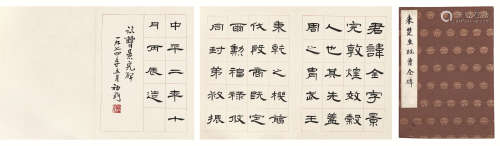 來楚生臨曹全碑
君諱全字景
完敦煌效穀
人也其先蓋
周之胄武王
秉乾之機翦
伐殷商既定
爾勳福祿攸
同封弟叔振
中平二年十
月丙辰造
曹景完碑
一九七四年五月